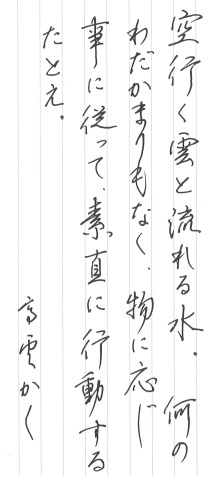 空行く雲と流れる水。何の
わだかまりもなく、物に応じ
事に従って、素直に行動する
たとえ。
高雲かく